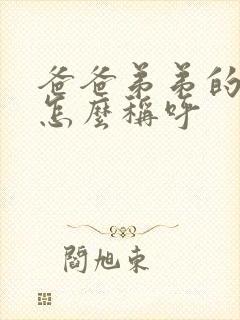 爸爸弟弟的
怎麼稱呼
閻旭東